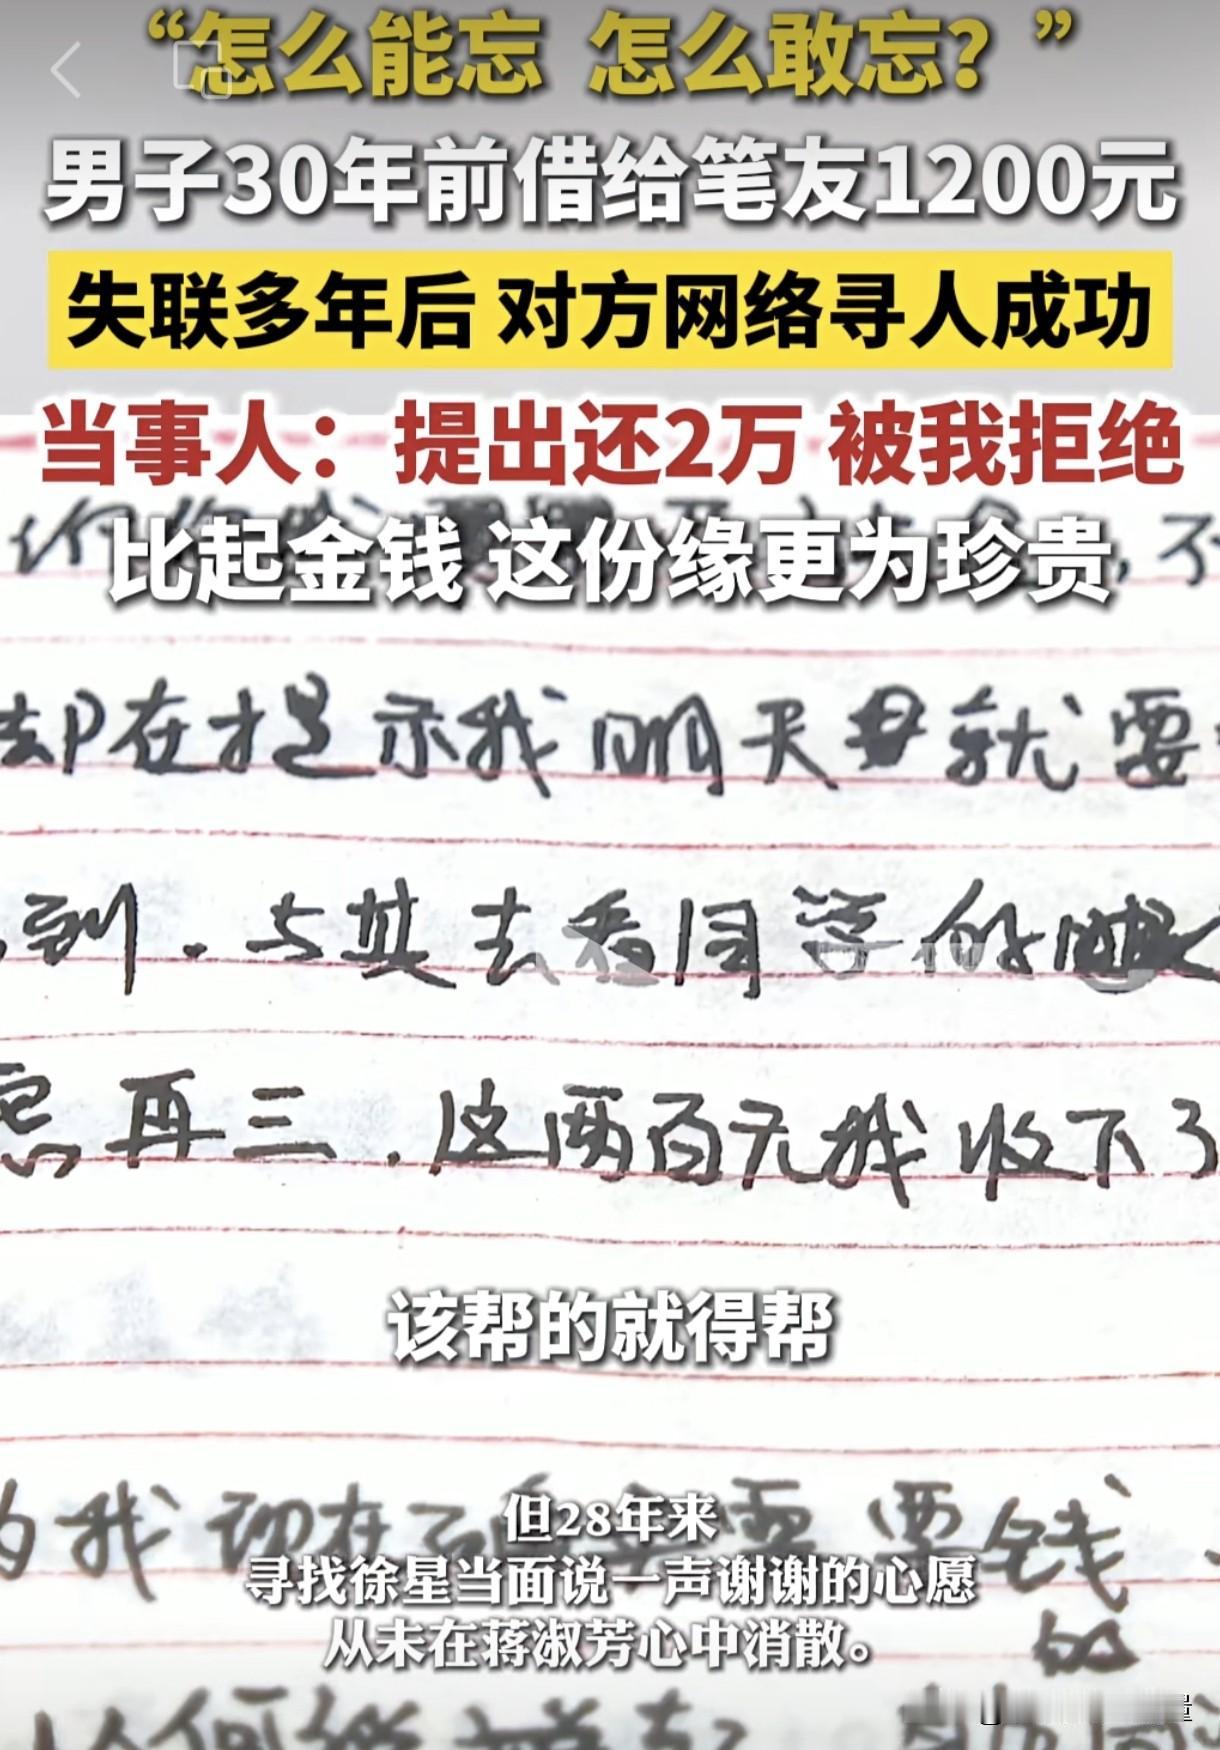 “怎么能忘 怎么敢忘？”
男子30年前借给笔友1200元
失联多年后 对方网络寻人成功
当事人：提出还2万 被我拒绝
比起金钱 这份缘更为珍贵
却在提示我明天毋就要
到.与其去看同学的
再三.这两百元我收下了
该帮的就得帮
我现在 需要钱
但28年来
寻找徐星当面说一声谢谢的心愿
从未在蒋淑芳心中消散。
的